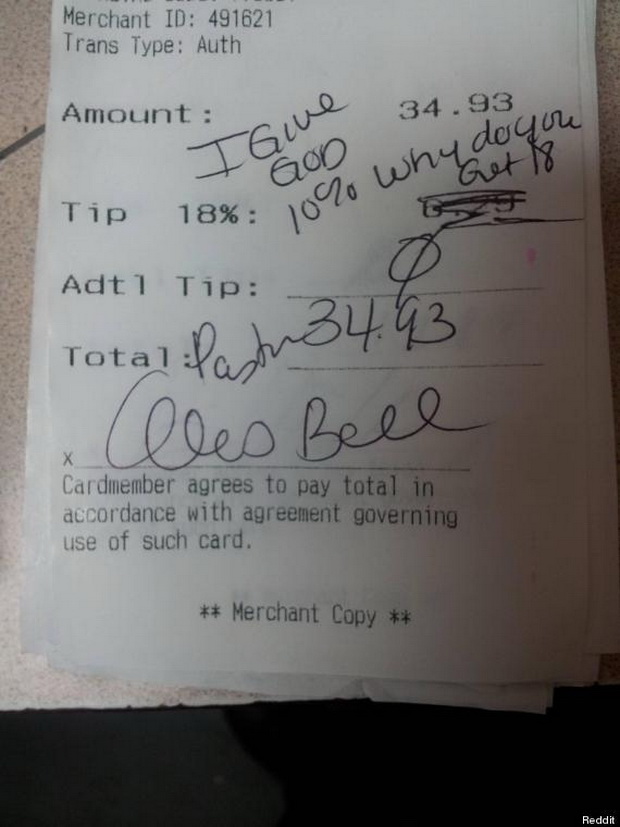 Merchant ID: 491621
Trans Type: Auth
Amount: 34.93
I Give
GOD
10% Why do you
Get 18
Tip 18%:
Adtl Tip: 0
Total: Pastor 34.93
x Alois Bell
Cardmember agrees to pay total in
accordance with agreement governing
use of such card.
** Merchant Copy **
Reddit